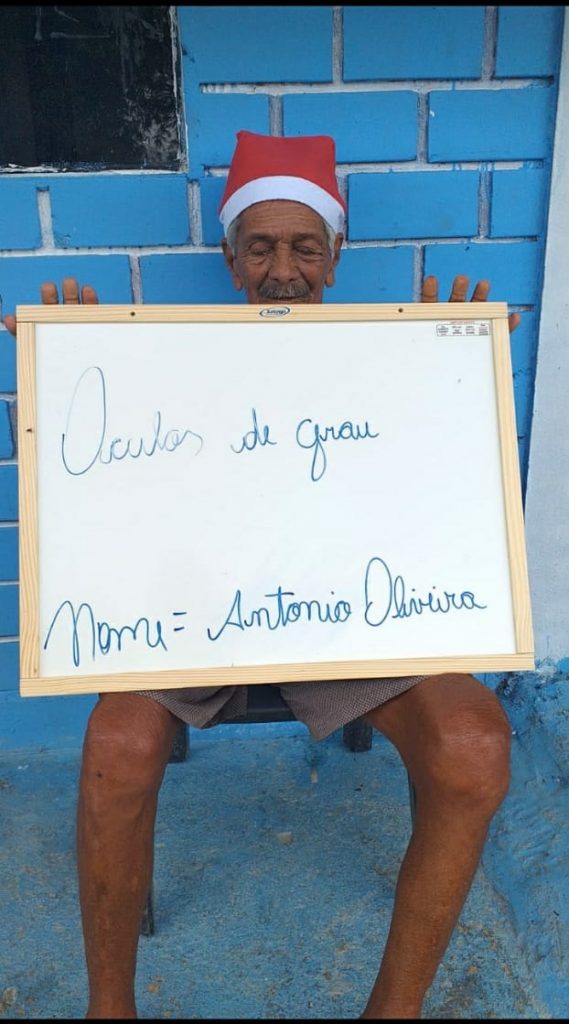 Oculos de grau
Nome = Antonio Oliveira